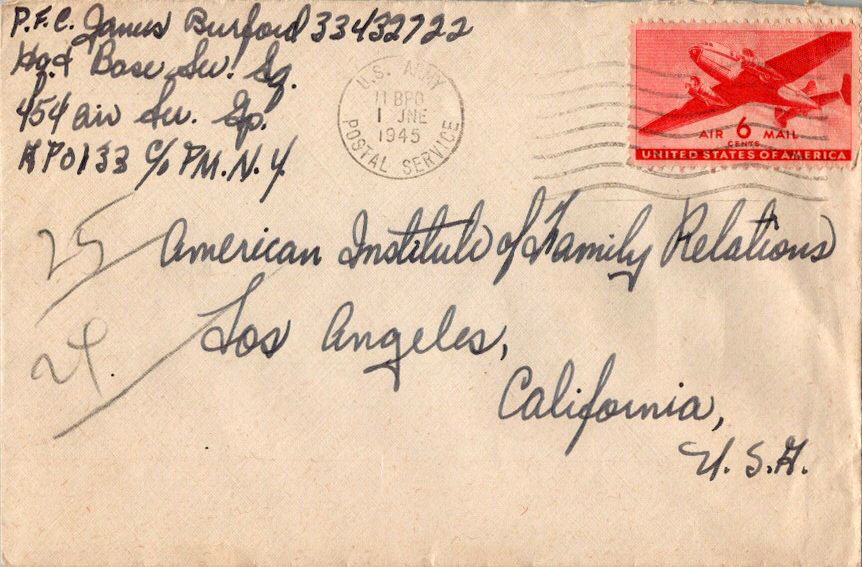 P.F.C. James Burford 33432722
Hq. & Base Sv. Sq.
454 Air Sv. Gp.
APO 133 c/o PM. N.Y.
U.S. ARMY
11 BPO
1 JNE
1945
POSTAL SERVICE
AIR 6 MAIL
CENTS
UNITED STATES OF AMERICA
American Institute of Family Relations
Los Angeles,
California,
U.S.A.
25
24